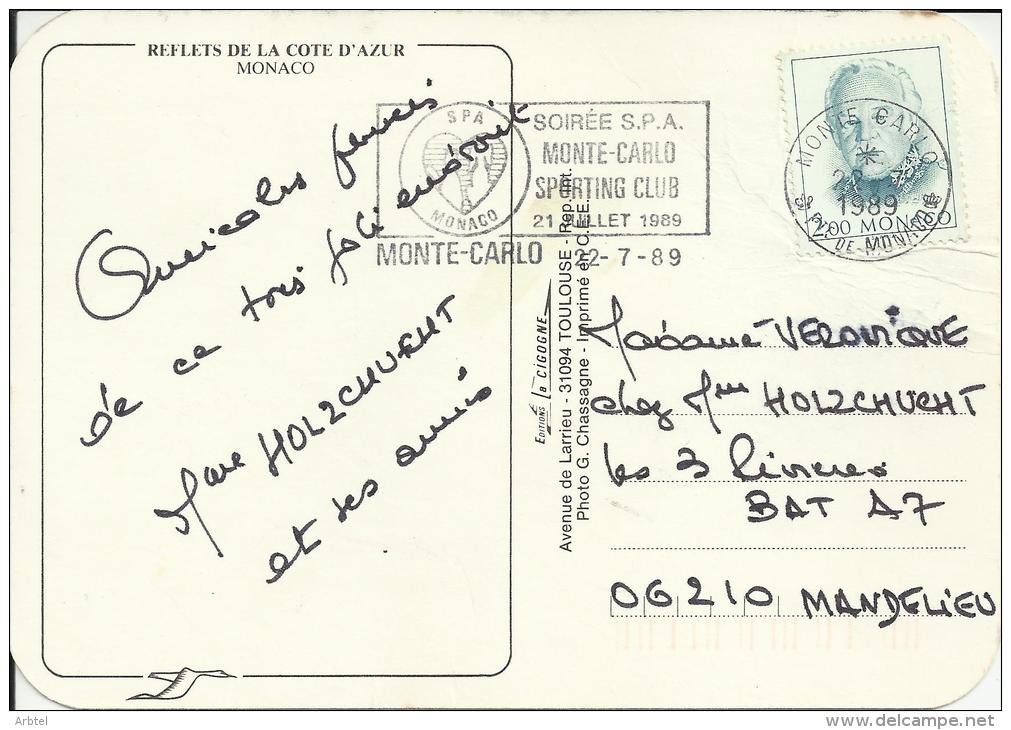 REFLETS DE LA COTE D'AZUR
MONACO
Amicales pensées
de ce très joli endroit
Marc HOLZCHUCHT
et ses amis
SPA
MONACO
SOIRÉE S.P.A.
MONTE-CARLO
SPORTING CLUB
21 JUILLET 1989
MONTE-CARLO 22-7-89
MONTE CARLO
1989
PTE DE MONACO
2.00 MONACO
EDITIONS la CIGOGNE
Avenue de Larrieu - 31094 TOULOUSE - Rep. Int.
Photo G. Chassagne - Imprimé en C.E.E.
Madame VERONIQUE
chez Mme HOLZCHUCHT
les 3 Rivières
BAT A7
06210 MANDELIEU
Arbtel
delcampe.net